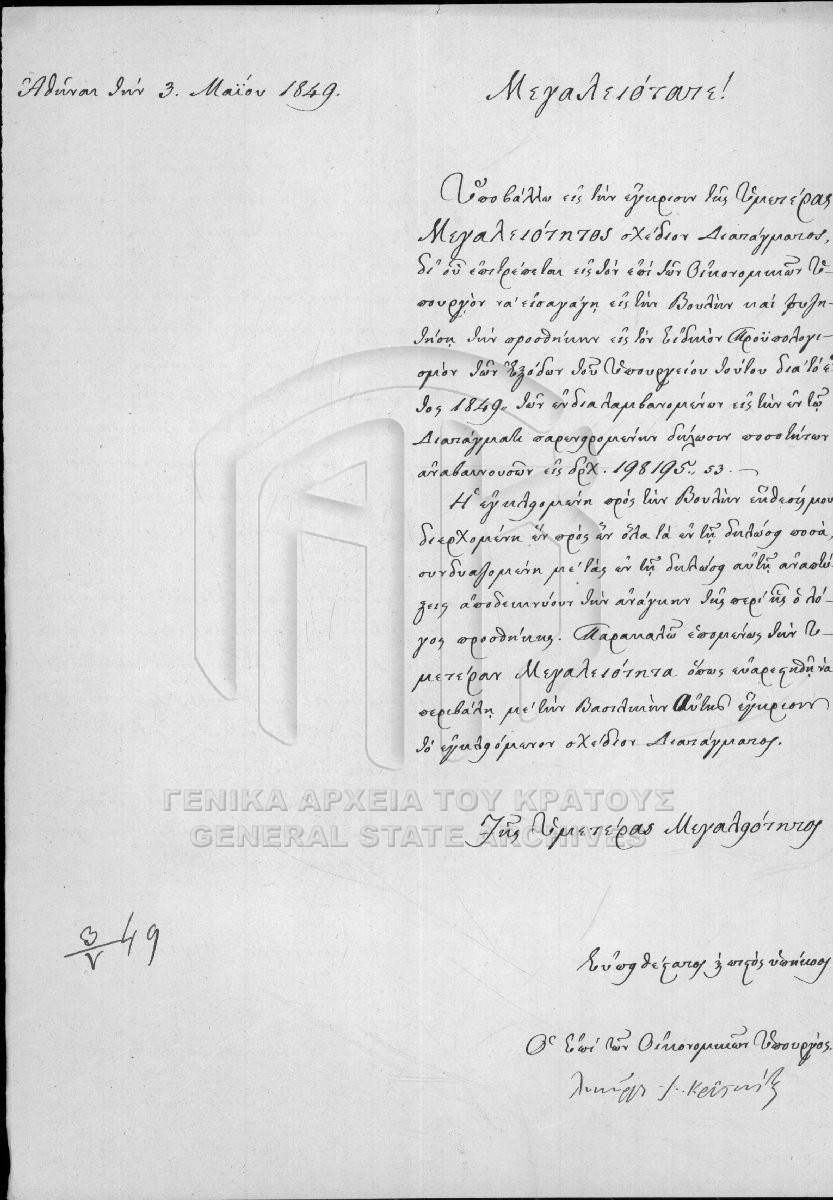 Ἀθῆναι τὴν 3. Μαΐου 1849.
Μεγαλειότατε!
Ὑποβάλλω εἰς τὴν ἔγκρισιν τῆς Ὑμετέρας
Μεγαλειότητος σχέδιον Διατάγματος,
δι' οὗ ἐπιτρέπεται εἰς τὸν ἐπὶ τῶν Οἰκονομικῶν Ὑ-
πουργὸν νὰ εἰσαγάγῃ εἰς τὴν Βουλὴν καὶ συζη-
τήσῃ τὴν προσθήκην εἰς τὸν Εἰδικὸν Προϋπολογι-
σμὸν τῶν Ἐξόδων τοῦ Ὑπουργείου τούτου διὰ τὸ ἔ-
τος 1849. τῶν ἐνδιαλαμβανομένων εἰς τὴν ἐν τῷ
Διατάγματι παρενθρομένην δήλωσιν ποσοτήτων
ἀναβαινουσῶν εἰς δρχ. 198195. 53. —
Ἡ ἐγκλειομένη πρὸς τὴν Βουλὴν ἔκθεσίς μου
διερχομένη ἓν πρὸς ἓν ὅλα τὰ ἐν τῇ δηλώσει ποσά,
συνδυαζομένη μὲ τὰς ἐν τῇ δηλώσει αὐτῇ ἀναπτύ-
ξεις ἀποδεικνύουσι τὴν ἀνάγκην τῆς περὶ ἧς ὁ λό-
γος προσθήκης. Παρακαλῶ ἑπομένως τὴν Ὑ-
μετέραν Μεγαλειότητα ὅπως εὐαρεστηθῇ νὰ
περιβάλῃ μὲ τὴν Βασιλικὴν Αὑτῆς ἔγκρισιν
τὸ ἐγκλειόμενον σχέδιον Διατάγματος.
ΓΕΝΙΚΑ ΑΡΧΕΙΑ ΤΟΥ ΚΡΑΤΟΥΣ
GENERAL STATE ARCHIVES
Τῆς Ὑμετέρας Μεγαλειότητος
3/V 49
Εὐπειθέστατος & πιστὸς ὑπήκοος
Ὁ Ἐπὶ τῶν Οἰκονομικῶν Ὑπουργὸς